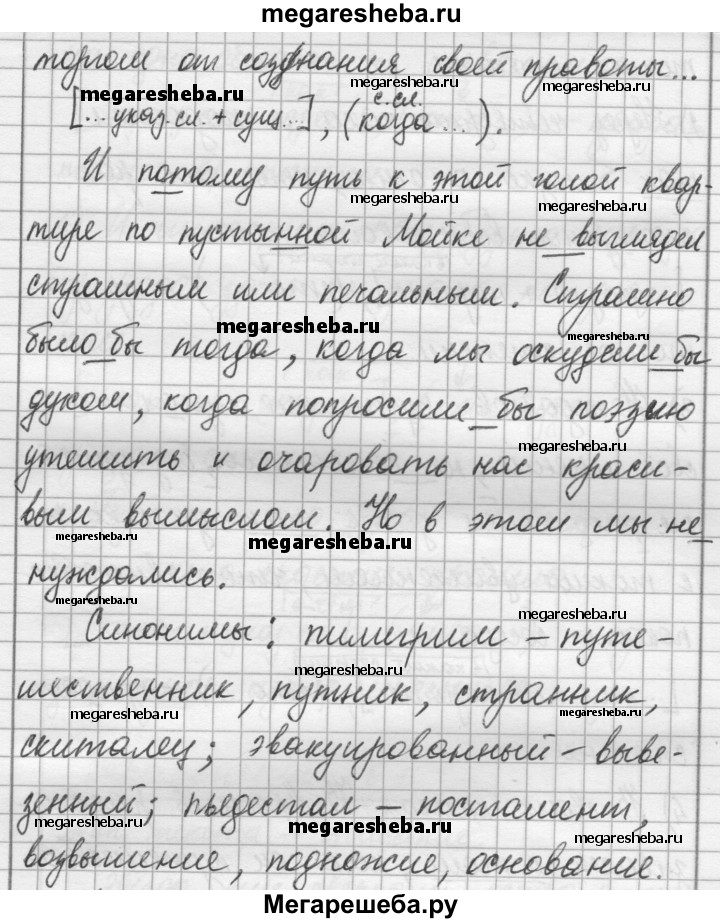 megaresheba.ru
торгом от сознания своей правоты...
megaresheba.ru
megaresheba.ru
с.сл.
[... указ. сл. + сущ...], (когда ...).
megaresheba.ru
И потому путь к этой голой квар-
megaresheba.ru
megaresheba.ru
тире по пустынной Мойке не выглядел
страшным или печальным. Страшно
megaresheba.ru
megaresheba.ru
было бы тогда, когда мы оскудели бы
духом, когда попросили бы поэзию
megaresheba.ru
утешить и очаровать нас краси-
вым вымыслом. Но в этом мы не
megaresheba.ru
megaresheba.ru
megaresheba.ru
нуждались.
megaresheba.ru
megaresheba.ru
Синонимы: пилигрим – путе-
megaresheba.ru
шественник, путник, странник,
megaresheba.ru
megaresheba.ru
скиталец; эвакуированный – выве-
megaresheba.ru
зенный; пьедестал – постамент,
megaresheba.ru
megaresheba.ru
возвышение, подножие, основание.
megaresheba.ru
Мегарешеба.ру